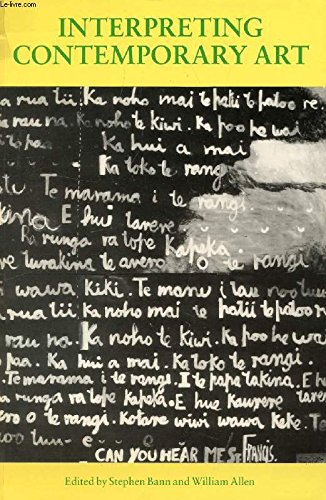 Le-livre.com
INTERPRETING
CONTEMPORARY ART
a rua tii. Ka noho mai te patii te patoo re
rau na. Ka noho te kiwi. Ka poo he wai
te paa. Ka hui a mai
Ka toko te rangi
Te marama i te rangi.
E hui tarere
Ra runga ra tope Kapeka
turakina te avero o te rangi
i wawa kiki. Te manu i tau
a rua tii Ka noho mai te patii te patoo r
rau na. Ka noho te kiwi. Ka poo he wa
paa. Ka hui a mai. Ka toko te rangi.
Te marama i te rangi. I te papa takina. E h
a runga ra tope kapeka. E hue Kaurere tura
avero o te rangi. Kotare wiwi wawa keke. Te
too luu- e
CAN YOU HEAR ME ST FRANCIS.
Edited by Stephen Bann and William Allen